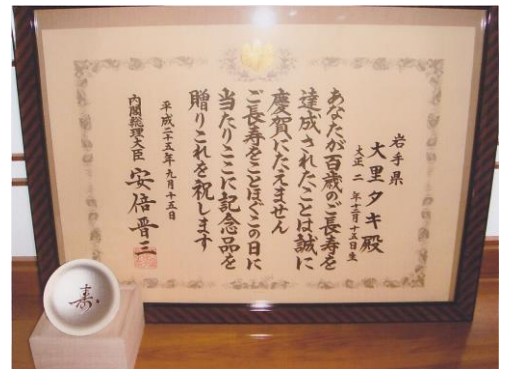 岩手県
大里タキ殿
大正二年十二月十五日生
あなたが百歳のご長寿を
達成されたことは誠に
慶賀にたえません
ご長寿をことほぐこの日に
当たりここに記念品を
贈りこれを祝します
平成二十五年九月十五日
内閣総理大臣 安倍晋三
寿